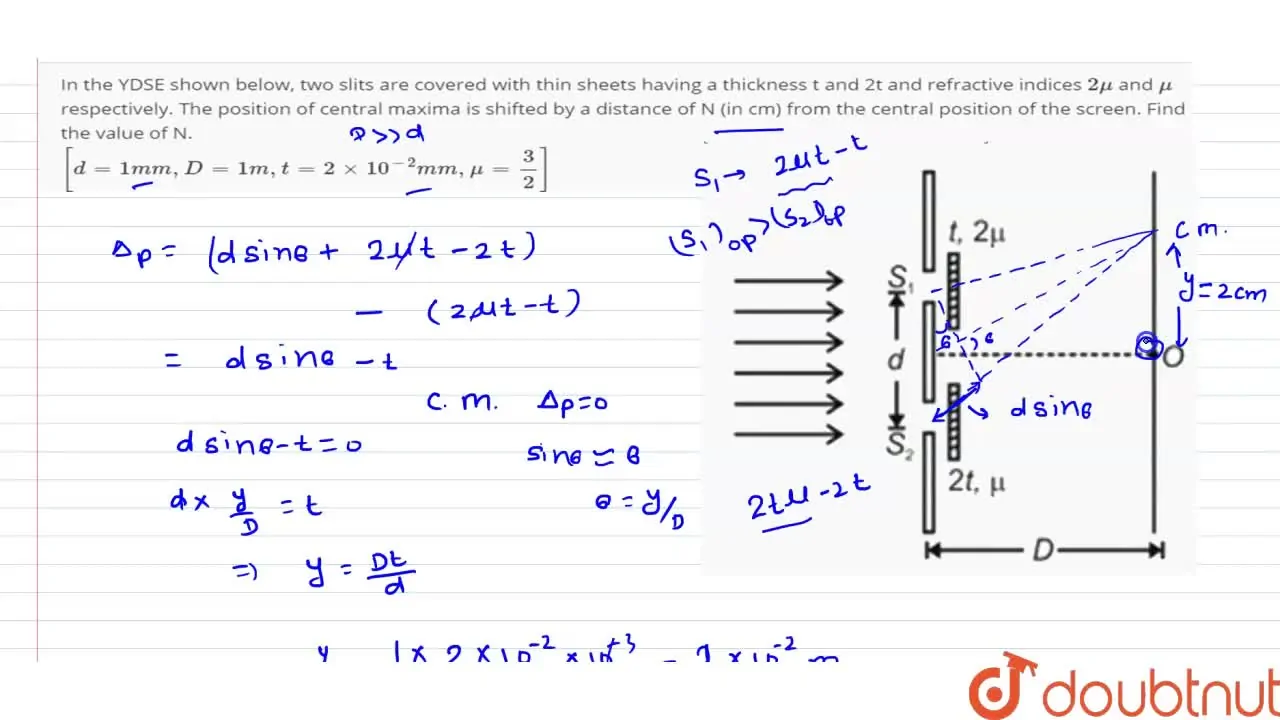 In the YDSE shown below, two slits are covered with thin sheets having a thickness t and 2t and refractive indices 2μ and μ
respectively. The position of central maxima is shifted by a distance of N (in cm) from the central position of the screen. Find
the value of N.
D >> d
[d = 1mm, D = 1m, t = 2 × 10⁻²mm, μ = 3/2]
S₁ → 2μt - t
(S₁)op > (S₂)op
Δp = (d sinθ + 2μt - 2t)
- (2μt - t)
= d sinθ - t
C.M. Δp = 0
d sinθ - t = 0
sinθ ≃ θ
d × y/D = t
θ = y/D
⇒ y = Dt/d
2tμ - 2t
t, 2μ
C M.
S₁
y = 2cm
θ θ
d
O
d sinθ
S₂
2t, μ
D
1 × 2 × 10⁻² × 10⁺³
doubtnut